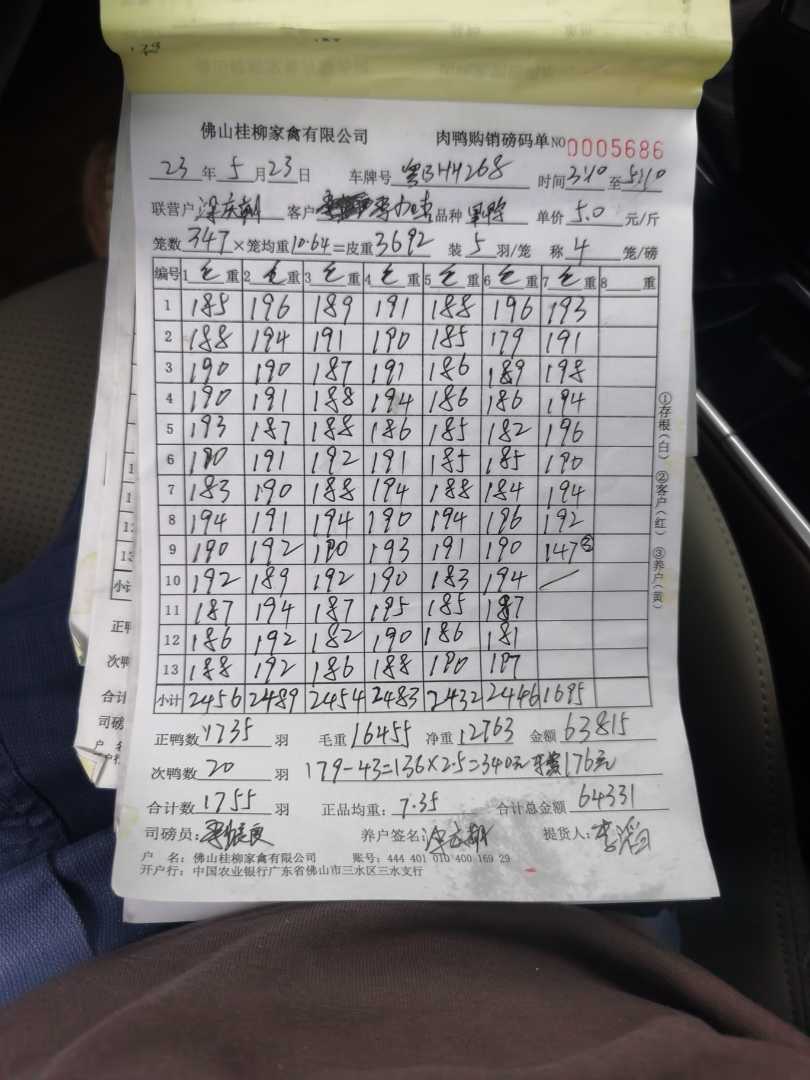 佛山桂柳家禽有限公司 肉鸭购销磅码单 NO 0005686
23 年 5 月 23 日 车牌号 粤BHH268 时间 3:10 至 5:10
联营户 客户 品种 单价 5.0 元/斤
笼数 347 ×笼均重 10.64 =皮重 3692 装 5 羽/笼 称 4 笼/磅
编号 1 毛 重 2 毛 重 3 毛 重 4 毛 重 5 毛 重 6 毛 重 7 毛 重 8 重
1 185 196 189 191 188 196 193
2 188 194 191 190 185 179 191
3 190 190 187 191 186 189 198
4 190 191 188 194 186 186 194
5 193 187 188 186 185 182 196
6 190 191 192 191 185 185 190
7 183 190 188 194 188 184 194
8 194 191 194 190 194 196 192
9 190 192 190 193 191 190 147 ③
10 192 189 192 190 183 194
11 187 194 187 195 185 187
12 186 192 182 190 186 181
13 188 192 186 188 190 197
小计 2456 2489 2454 2483 2432 2446 1695
①存根(白) ②客户(红) ③养户(黄)
正鸭数 1735 羽 毛重 16455 净重 12763 金额 63815
次鸭数 20 羽 179-43=136×2.5=340元 176元
合计数 1755 羽 正品均重: 7.35 合计总金额 64331
司磅员: 养户签名: 提货人: 李滔
户 名: 佛山桂柳家禽有限公司 账号: 444 401 010 400 169 29
开户行: 中国农业银行广东省佛山市三水区三水支行
小计
正鸭
次鸭
合计
司磅